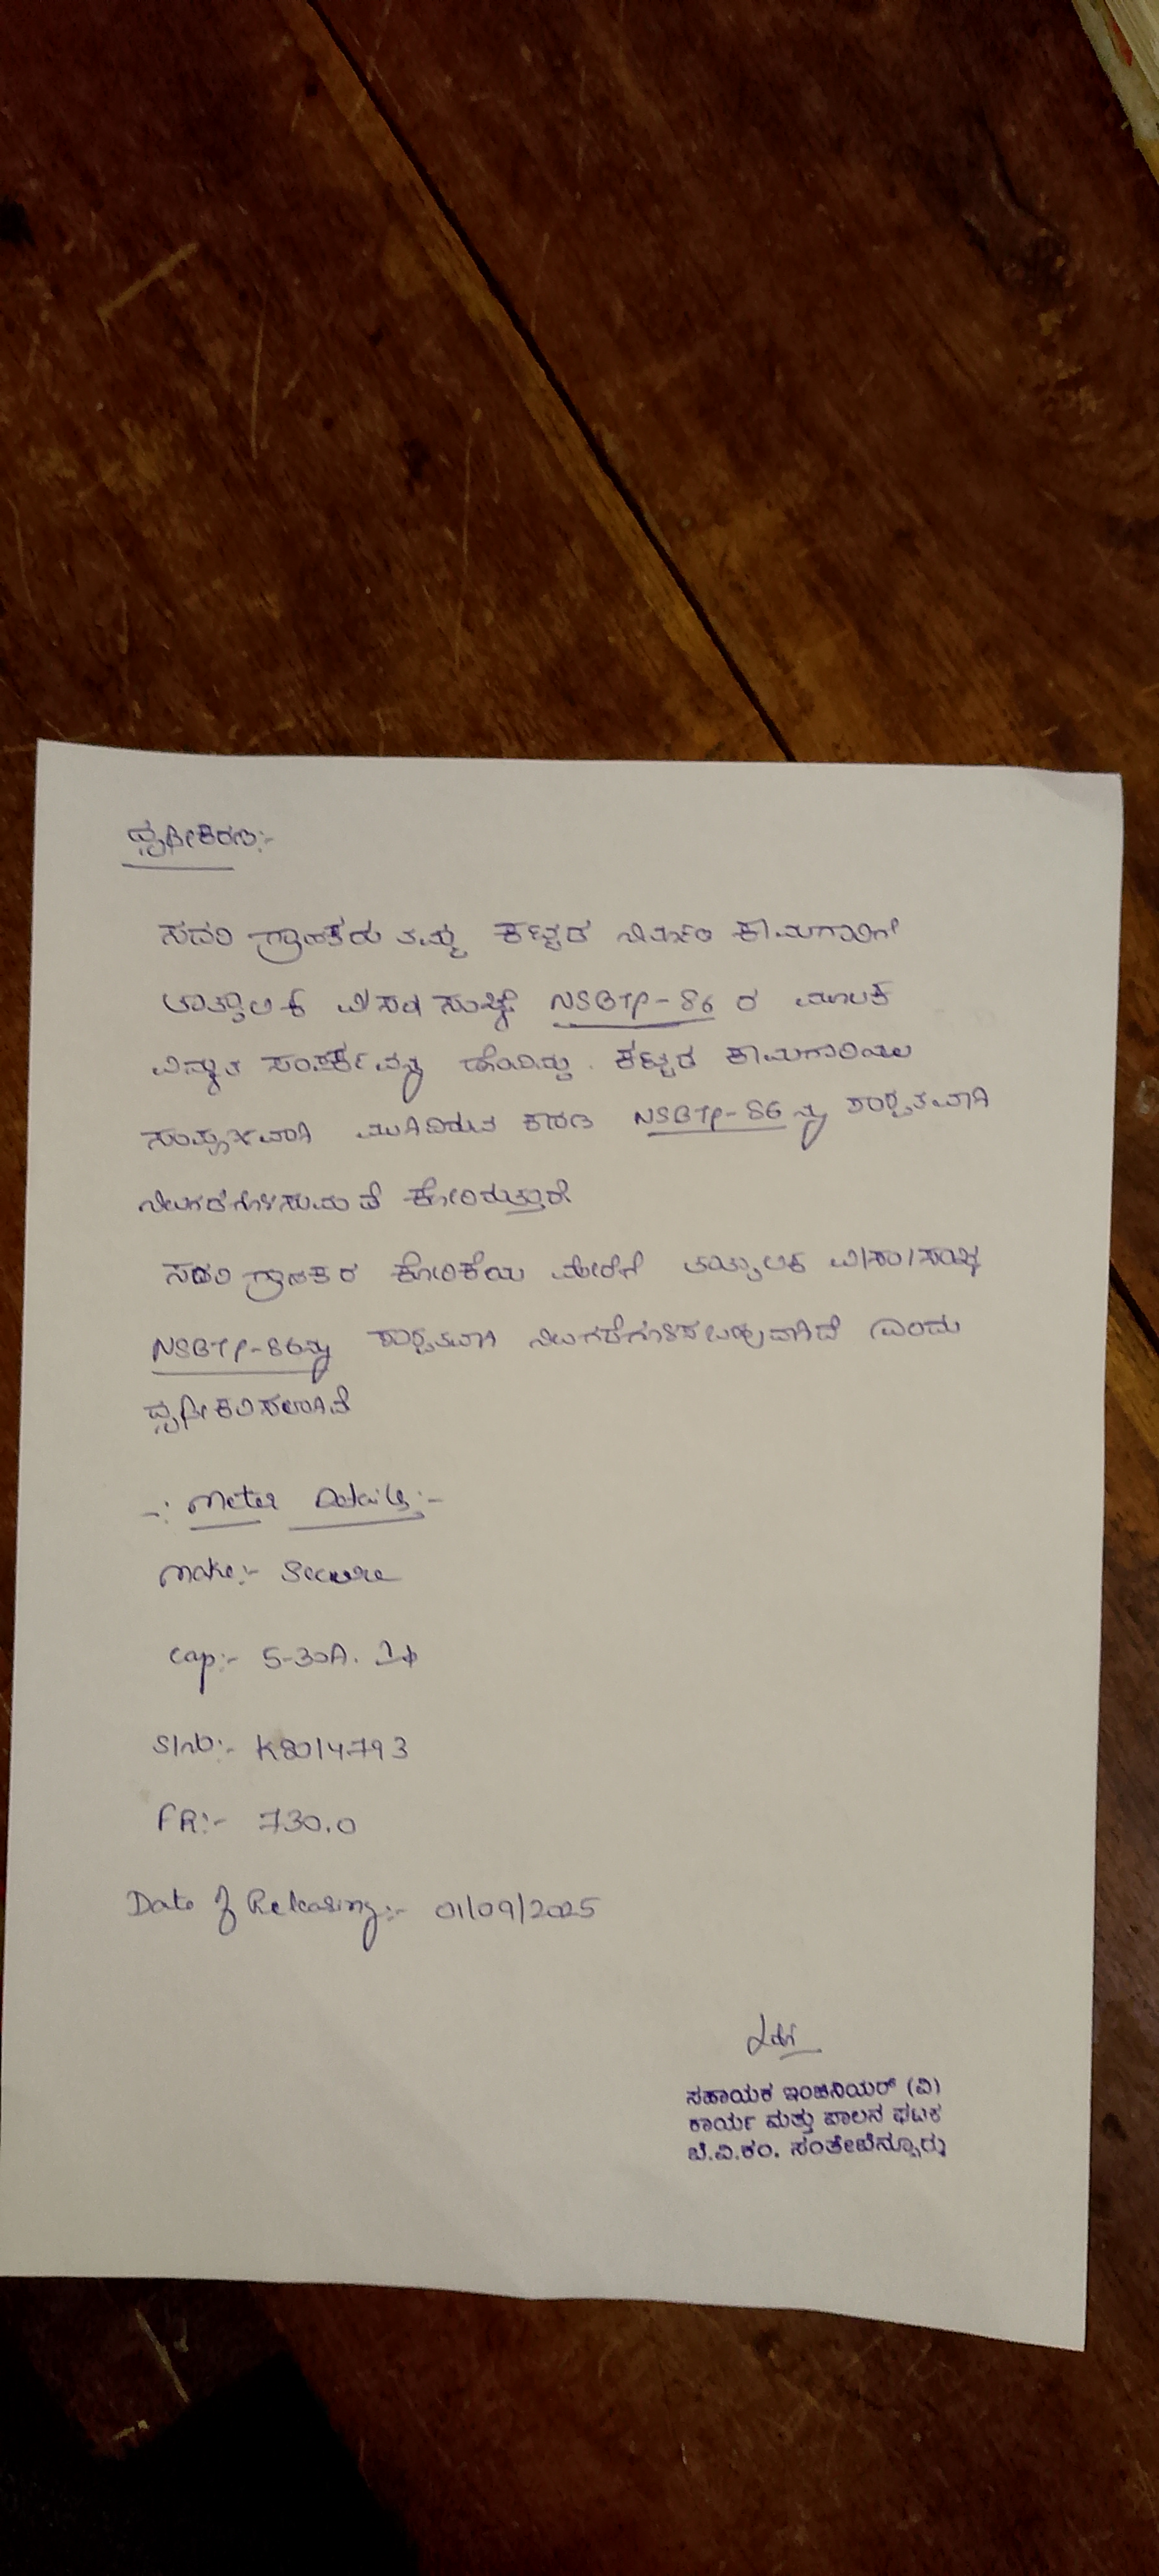 ಧೃಢೀಕರಣ:-
ಸದರಿ ಗ್ರಾಹಕರು ತಮ್ಮ ಕಟ್ಟಡ ನಿರ್ಮಾಣ ಕಾಮಗಾರಿಗೆ
ತಾತ್ಕಾಲಿಕ ವಿ/ಸಂಪರ್ಕ ಸಂಖ್ಯೆ NSBTP-86 ರ ಮೂಲಕ
ವಿದ್ಯುತ ಸಂಪರ್ಕವನ್ನು ಹೊಂದಿದ್ದು. ಕಟ್ಟಡ ಕಾಮಗಾರಿಯು
ಸಂಪೂರ್ಣವಾಗಿ ಮುಗಿದಿರುವ ಕಾರಣ NSBTP-86 ನ್ನು ಶಾಶ್ವತವಾಗಿ
ನಿಲುಗಡೆಗೊಳಿಸುವಂತೆ ಕೋರಿರುತ್ತಾರೆ.
ಸದರಿ ಗ್ರಾಹಕರ ಕೋರಿಕೆಯ ಮೇರೆಗೆ ತಾತ್ಕಾಲಿಕ ವಿ/ಸಂ/ಸಂಖ್ಯೆ
NSBTP-86ನ್ನು ಶಾಶ್ವತವಾಗಿ ನಿಲುಗಡೆಗೊಳಿಸಲಾಗಿದೆ ಎಂದು
ಧೃಢೀಕರಿಸಲಾಗಿದೆ
-: Meter Details:-
Make:- Secure
Cap:- 5-30A. 1ϕ
Slno:- K8014793
FR:- 730.0
Date of Releasing:- 01/09/2025
ಸಹಾಯಕ ಇಂಜಿನಿಯರ್ (ವಿ)
ಕಾರ್ಯ ಮತ್ತು ಪಾಲನ ಘಟಕ
ಬೆ.ವಿ.ಕಂ. ಸಂತೇಬೆನ್ನೂರು